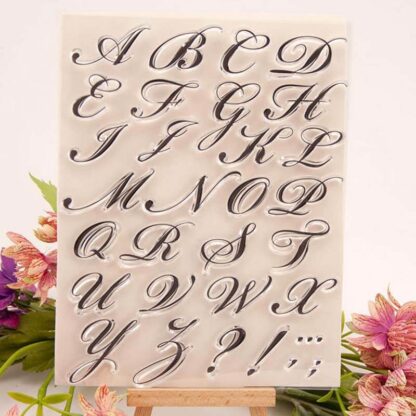 A B C D
E F G H
I J K L
M N O P
Q R S T
U V W X
Y Z ? ! ... ; ;